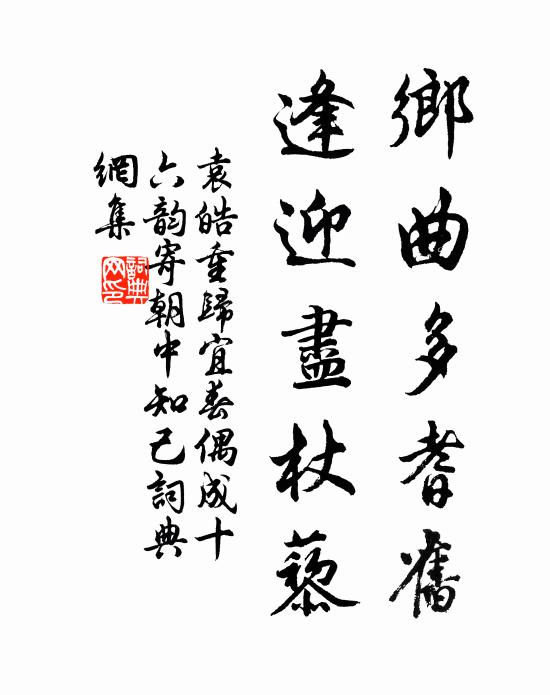 鄉曲多耆舊
逢迎盡杖藜
袁皓重歸宜春偶成十
六韵寄朝中知己詞典
網集
詞典
网印